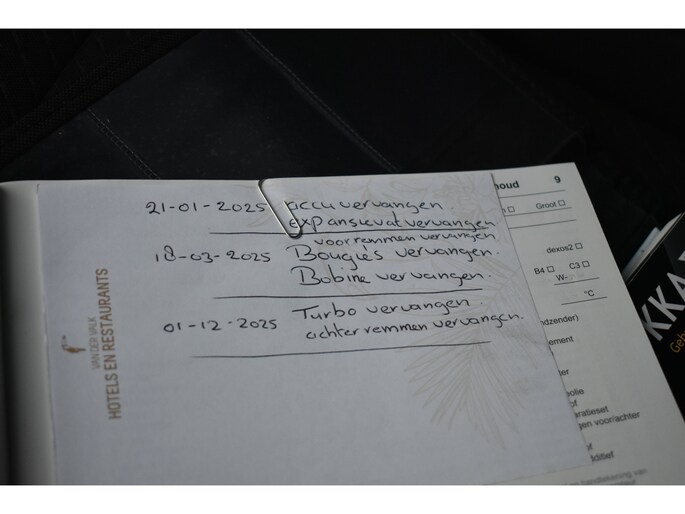 21-01-2025 accu vervangen.
expansievat vervangen
voorremmen vervangen
18-03-2025 Bougie's vervangen.
Bobine vervangen.
01-12-2025 Turbo vervangen.
achter remmen vervangen.
VAN DER VALK
HOTELS EN RESTAURANTS
houd 9
Groot
dexos2
B4 C3
W-
°C
dzender)
ement
olie
of
aratieset
gen voor/achter
of
dditief
en handtekening van
KKA
Geb